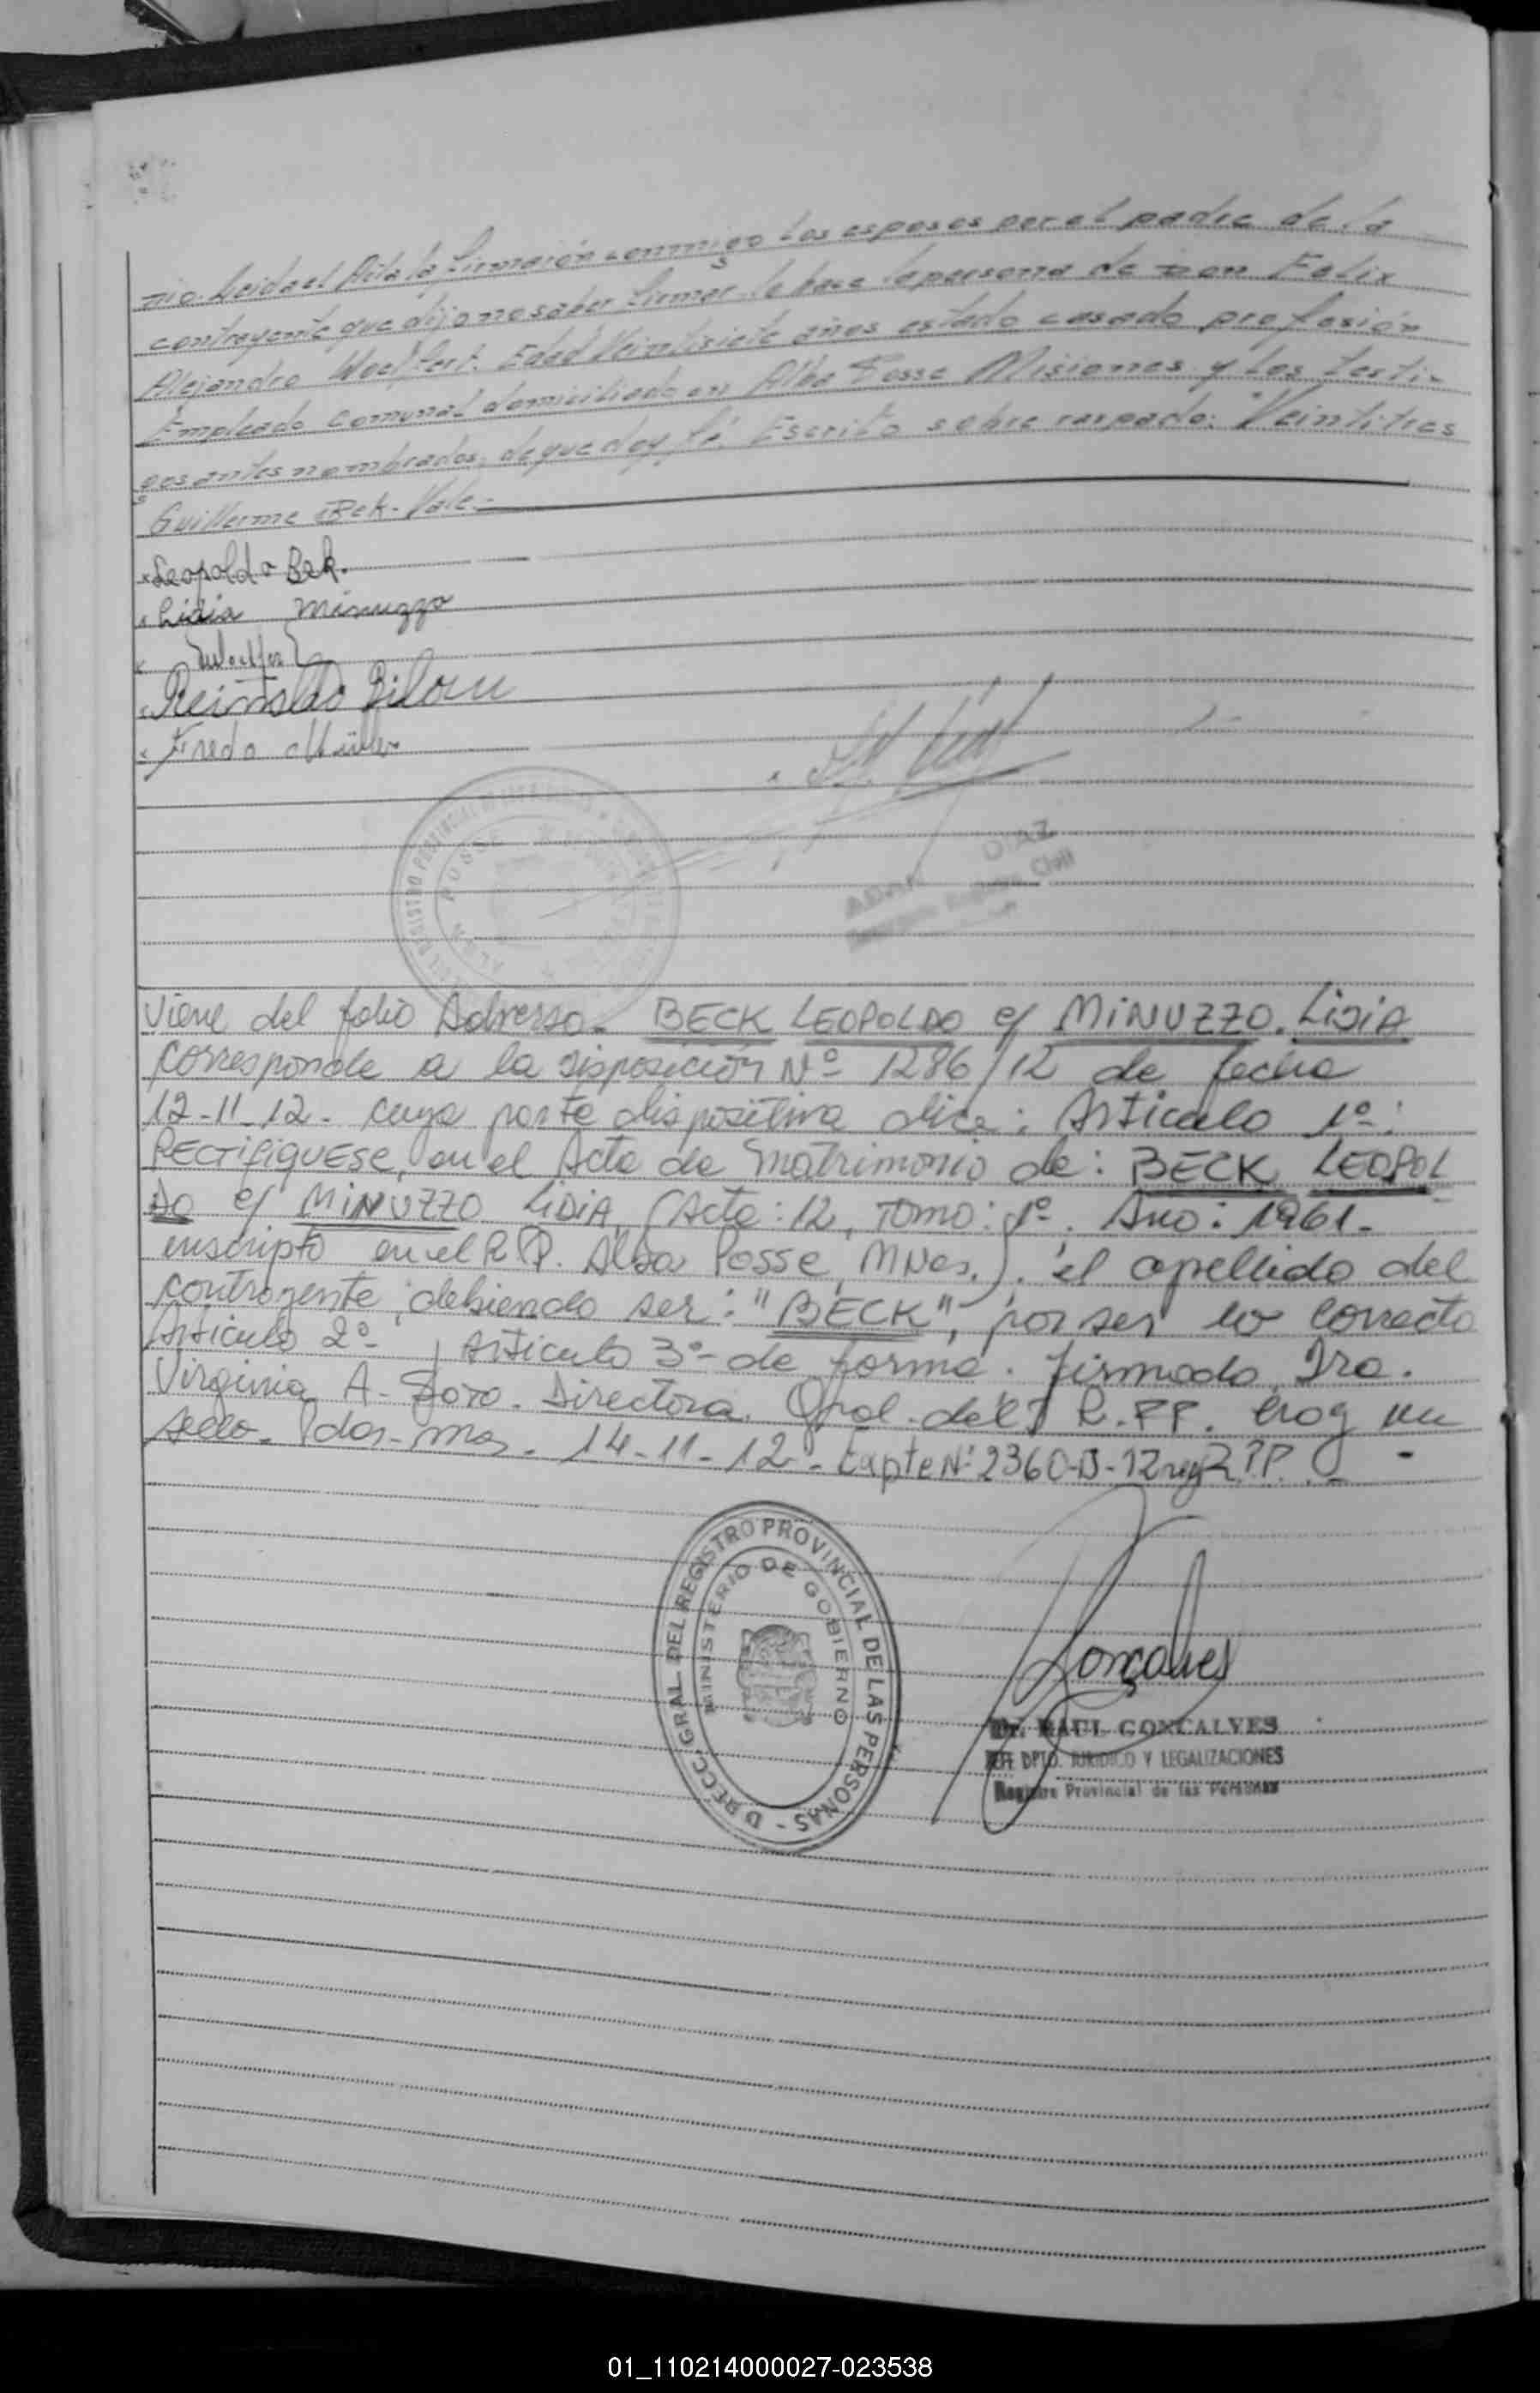 nio. Leida el Acta la firmarón conmigo los esposos por el padre de la
contrayente que dijo no saber firmar lo hace la persona de Don Felix
Alejandro Woelfert. Edad Veintisiete años estado casado profesión
Empleado Comunal domiciliado en Alba Posse Misiones y los testi-
gos antes nombrados, de que doy fé. Escrito sobre raspado: Veintitres
Guillermo Bek. Vale.-
Leopoldo Bek.
Lidia Minuzzo
Reinoldo
Fredo Müller
DIAZ
Civil
POSSE
Viene del folio Adverso. BECK LEOPOLDO c/ MINUZZO. LIDIA
Corresponde a la disposición Nº 1286/12 de fecha
12-11-12. cuya parte dispositiva dice: Articulo 1º:
RECTIFIQUESE, en el Acta de Matrimonio de: BECK LEOPOL
DO c/ MINUZZO LIDIA, (Acta: 12, Tomo: 1º. Año: 1961.
inscripto en el R.P. Alba Posse, Mnes.). el apellido del
contrayente, debiendo ser: "BECK", por ser lo correcto
Articulo 2º- Articulo 3º- de forma. firmado Dra.
Virginia A. Directora Gral. del R.PP. hay un
sello. Pdas. Mnes. 14-11-12.- Expte Nº 2360-B-12 R.P.P.
DIRECC. GRAL DEL REGISTRO PROVINCIAL DE LAS PERSONAS -
MINISTERIO DE GOBIERNO
Gonçalves
Dr. RAUL GONCALVES
JEFE DPTO. JURIDICO Y LEGALIZACIONES
Registro Provincial de las Personas
01_110214000027-023538